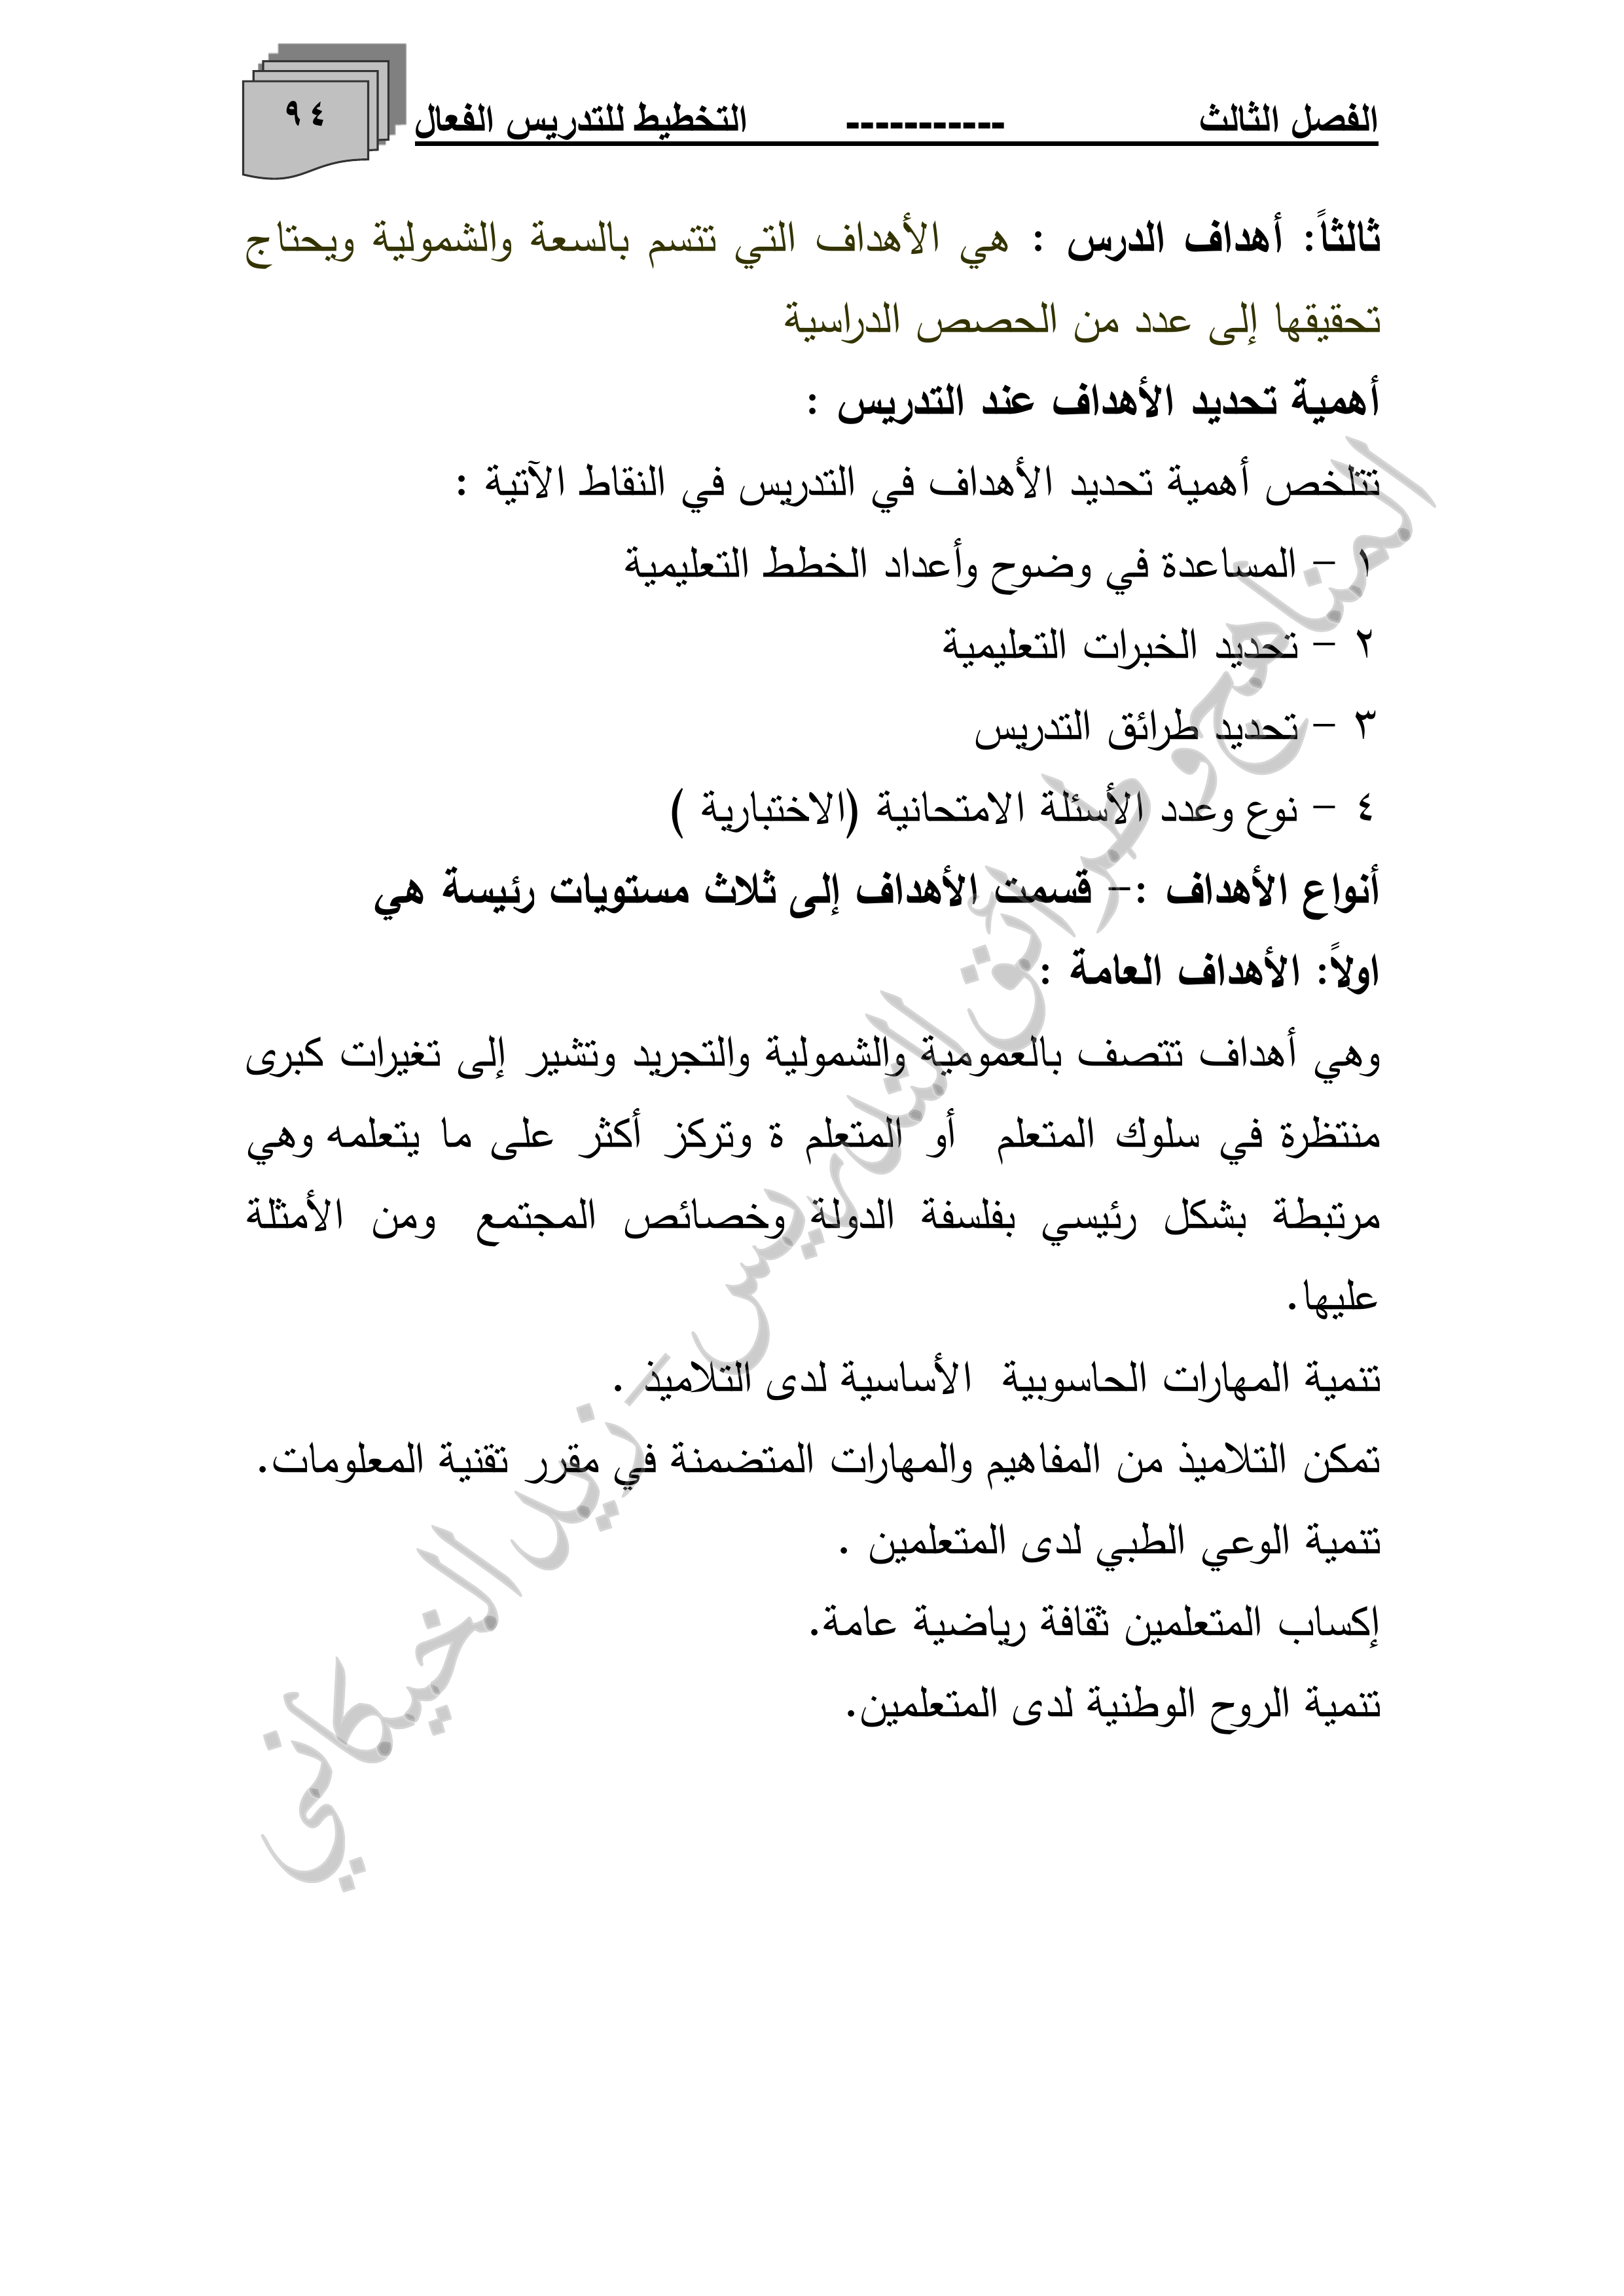 الفصل الثالث ----------- التخطيط للتدريس الفعال
٩٤
ثالثاً: أهداف الدرس : هي الأهداف التي تتسم بالسعة والشمولية ويحتاج
تحقيقها إلى عدد من الحصص الدراسية
أهمية تحديد الأهداف عند التدريس :
تتلخص أهمية تحديد الأهداف في التدريس في النقاط الآتية :
١ - المساعدة في وضوح وأعداد الخطط التعليمية
٢ - تحديد الخبرات التعليمية
٣ - تحديد طرائق التدريس
٤ - نوع وعدد الأسئلة الامتحانية (الاختبارية )
أنواع الأهداف :- قسمت الأهداف إلى ثلاث مستويات رئيسة هي
اولاً: الأهداف العامة :
وهي أهداف تتصف بالعمومية والشمولية والتجريد وتشير إلى تغيرات كبرى
منتظرة في سلوك المتعلم أو المتعلم ة وتركز أكثر على ما يتعلمه وهي
مرتبطة بشكل رئيسي بفلسفة الدولة وخصائص المجتمع ومن الأمثلة
عليها.
تنمية المهارات الحاسوبية الأساسية لدى التلاميذ .
تمكن التلاميذ من المفاهيم والمهارات المتضمنة في مقرر تقنية المعلومات.
تنمية الوعي الطبي لدى المتعلمين .
إكساب المتعلمين ثقافة رياضية عامة.
تنمية الروح الوطنية لدى المتعلمين.
المناهج وطرائق التدريس - زيد الخيكاني